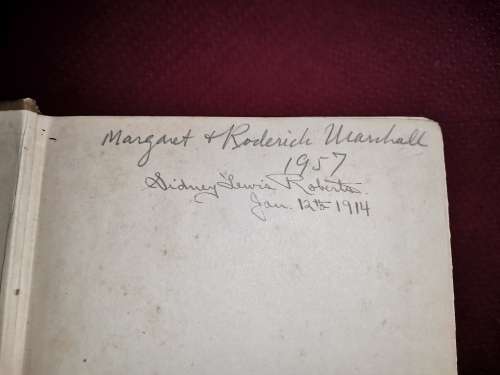 Margaret & Roderick Marshall
1957
Sidney Lewis Roberts.
Jan. 12th 1914